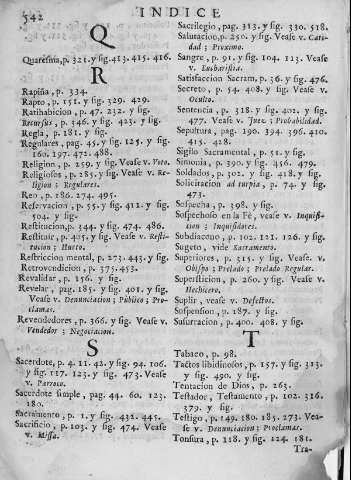 542
INDICE
Q
Quaresma, p. 321. y sig. 413. 415. 416.
R
Rapiña, p. 334.
Rapto, p. 151. y sig. 329. 429.
Ratihabicion, p. 47. 232. y sig.
Recursos, p. 346. y sig. 423. y sig.
Regla, p. 181. y sig.
Regulares, pag. 45. y sig. 125. y sig.
160. 197. 472. 488.
Religion, p. 259. y sig. Vease v. Voto.
Religiosos, p. 285. y sig. Vease v. Re-
ligion ; Regulares.
Reo, p. 186. 274. 495.
Reservacion, p. 55. y sig. 411. y sig.
504. y sig.
Restitucion, p. 344. y sig. 474. 486.
Restituir, p. 405. y sig. Vease v. Resti-
tucion ; Hurto.
Restriccion mental, p. 273. 443. y sig.
Retrovendicion, p. 375. 453.
Revalidar, p. 156. y sig.
Revelar, pag. 185. y sig. 401. y sig.
Vease v. Denunciacion ; Publico ; Pro-
clamas.
Revendedores, p. 366. y sig. Vease v.
Vendedor ; Negociacion.
S
Sacerdote, p. 4. 11. 42. y sig. 94. 106.
y sig. 117. 123. y sig. 473. Vease
v. Parroco.
Sacerdote simple, pag. 44. 60. 123.
180.
Sacramento, p. 1. y sig. 432. 445.
Sacrificio, p. 103. y sig. 474. Vease
v. Missa.
Sacrilegio, pag. 313. y sig. 330. 518.
Salutacion, p. 250. y sig. Vease v. Cari-
dad ; Proximo.
Sangre, p. 91. y sig. 104. 123. Vease
v. Eucharistia.
Satisfaccion Sacram, p. 36. y sig. 476.
Secreto, p. 54. 408. y sig. Vease v.
Oculto.
Sentencia, p. 318. y sig. 402. y sig.
477. Vease v. Juez ; Probabilidad.
Sepultura, pag. 190. 394. 396. 410.
415. 428.
Sigilo Sacramental, p. 51. y sig.
Simonia, p. 390. y sig. 456. 479.
Soldados, p. 302. y sig. 418. y sig.
Solicitacion ad turpia, p. 74. y sig.
473.
Sospecha, p. 398. y sig.
Sospechoso en la Fé, vease v. Inquisi-
cion ; Inquisidores.
Subdiacono, p. 102. 121. 126. y sig.
Sugeto, vide Sacramento.
Superiores, p. 315. y sig. Vease v.
Obispo ; Prelado ; Prelado Regular.
Supersticion, p. 260. y sig. Vease v.
Hechicero.
Suplir, vease v. Defectos.
Suspension, p. 187. y sig.
Susurracion, p. 400. 408. y sig.
T
Tabaco, p. 98.
Tactos libidinosos, p. 157. y sig. 313.
y sig. 490. y sig.
Tentacion de Dios, p. 263.
Testador, Testamento, p. 102. 316.
379. y sig.
Testigo, p. 149. 180. 185. 273. Vea-
se v. Denunciacion ; Proclamas.
Tonsura, p. 118. y sig. 124. 181.
Tra-